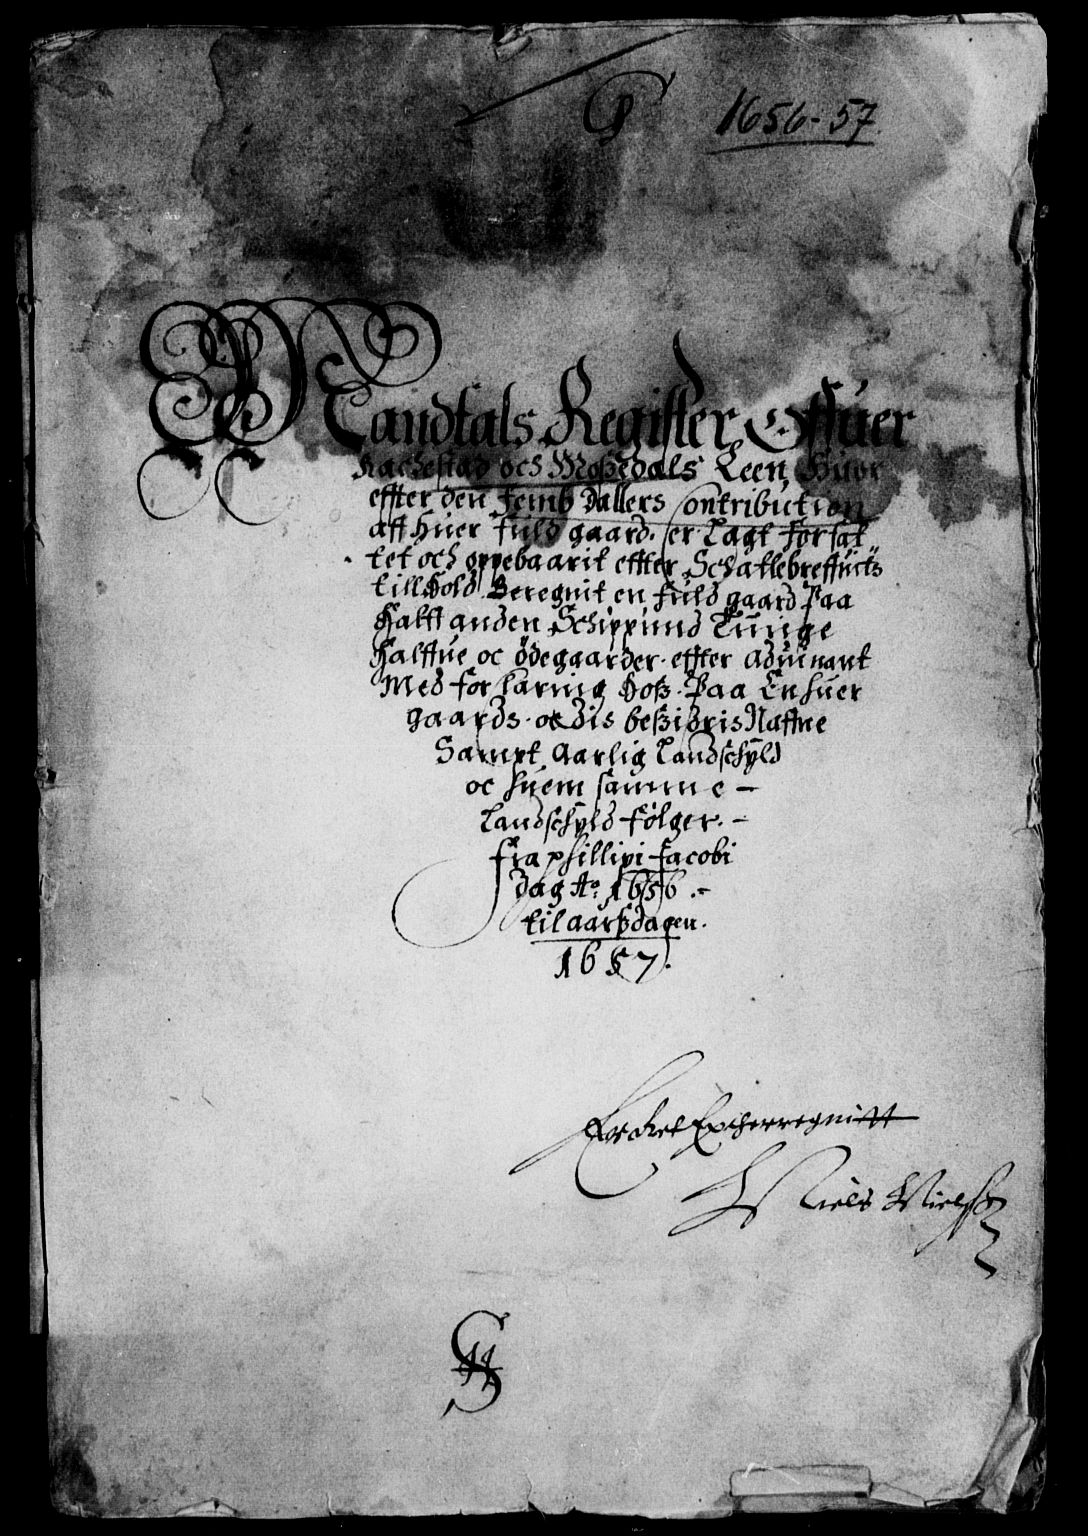 1656-57.
Mandtals Register Offuer
Rachestad och Moßedals Leen, Huor
effter den femb Dallers Contribution
aff huer fuld gaard. er Lagt forfat
tet och oppebaarit effter Schattebreffuits
till Hold. Beregnit en fuld gaard Paa
Halff anden Schippund Tunge
Halffue oc ødegaarder. effter aduinant
Med forklaring Hoß. Paa Enhuer
gaards. oc dis beßidris Naffne
Sampt Aarlig Landschyld
oc huem samme -
Landschyld følger. -
fra phillipi Jacobi
dag Ao. 1656 .-
til aarßdagen.
1657.
Niels Nielß